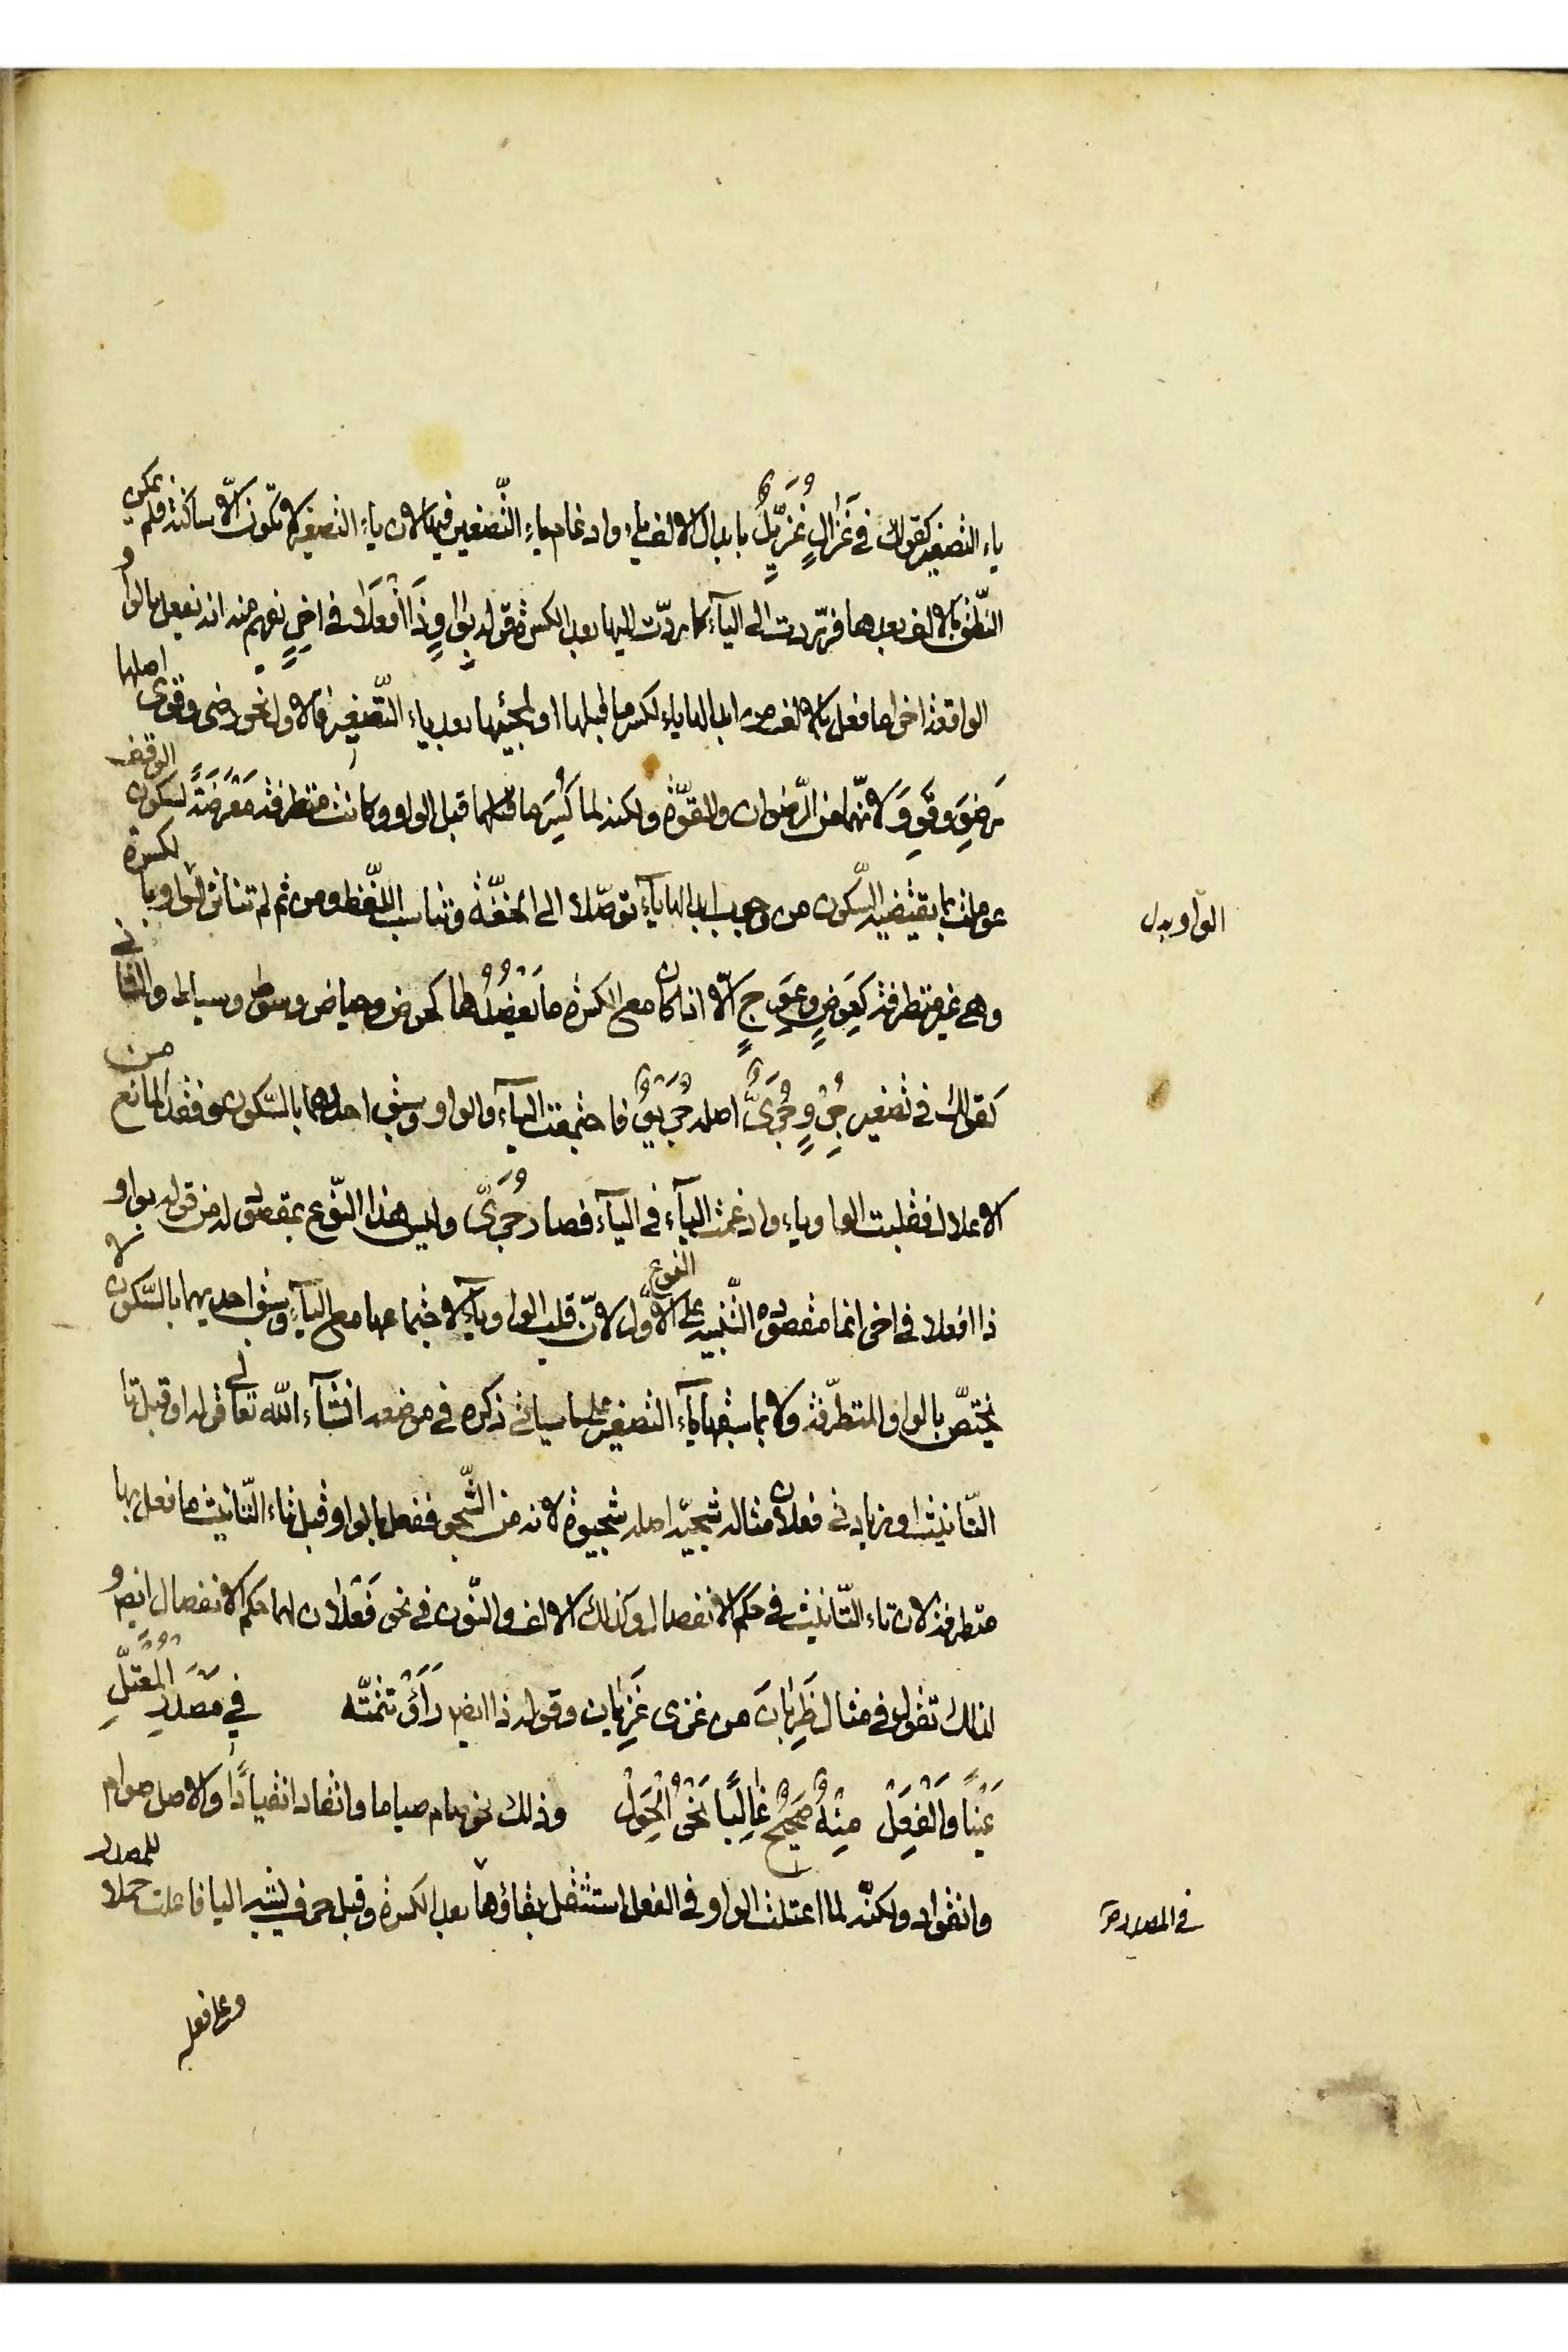 ياء التصغير كقولك في غَزَالٍ غُزَيِّلٌ بابدال الالف ياء وادغام ياء التّصغير فيها لان ياء التصغير لا تكون الّا ساكنة فلم يمكن
النّطق بالالف بعدها فردّت الى الياء كما ردّت اليها بعد الكسرة قوله بواوٍ ذَا افْعَلَا في اخِرٍ يفهم منه انه يفعل بالواو
الواقعة اخرا ما فعل بالالف من ابدالها ياء لكسر ما قبلها او لمجيئها بعد ياء التّصغير فالاول نحو رضى وقوى اصلها
رَضِوَ وقَوِوَ لانّهما من الرّضوان والقوّة ولكنه لما كُسِرَ ما قبل الواو وكانت متطرفة مَعَرَّضَةً لسكون الوقف
عوملت بما يقتضيه السّكون من وجوب ابدالها ياء توصّلا الى الخفّة وتناسب اللّفظ ومن ثم لم تتأثر الواو بالكسرة
وهي غير متطرفة كعِوَضٍ وعِوَجٍ الّا اذا كان مع الكسرة ما يَعْضُدُها كحوض وحياض وسوط وسياط والثاني
كقولك في تصغير جِرْوٍ جُرَىٌّ اصله جُرَيْوٌ فاجتمعت الياء والواو وسبق احدهما بالسّكون وفقد المانع من
الاعلال فقلبت الواو ياء وادغمت الياء في الياء فصار جُرَىٌّ وليس هذا النّوع بمقصود له من قوله بواو
ذا افعلا في اخر انما مقصوده التّنبيه على النوع الاوّل لانّ قلب الواو ياء لاجتماعها مع الياء وسبق احديهما بالسّكون لا
يختصّ بالواو المتطرّفة ولا بما سبقها ياء التصغير على ما سيأتي ذكره في موضعه انشآء اللّه تعالى قوله او قبل تا
التّأنيث او زيادتى فعلان مثاله شجيّة اصله شجيوة لانه من الشّجو ففعل بالواو قبل تاء التّأنيث ما فعل بها
متطرفة لان تاء التّأنيث في حكم الانفصال وكذلك الالف والنّون في نحو فَعْلَان لهما حكم الانفصال ايضا و
لذلك تقول في مثال ظَرِبَانَ من غزى غَزِيَان وقوله ذا ايضا رَأَوْ تتمّته في مَصْدَرِ الْمُعْتَلِّ
عَيْنًا وَالْفِعَلْ مِنْهُ صَحِيحٌ غَالِبًا نَحْوُ الْحِوَلْ وذلك نحو صام صياما وانقاد انقيادًا والاصل صوام
وانقواد ولكنّه لما اعتلت الواو في الفعل استثقل بقاؤها بعد الكسرة وقبل حرف يشبه اليا فاعلت حملا للمصدر
الواو بدل
في المصدر
وعلى فعله